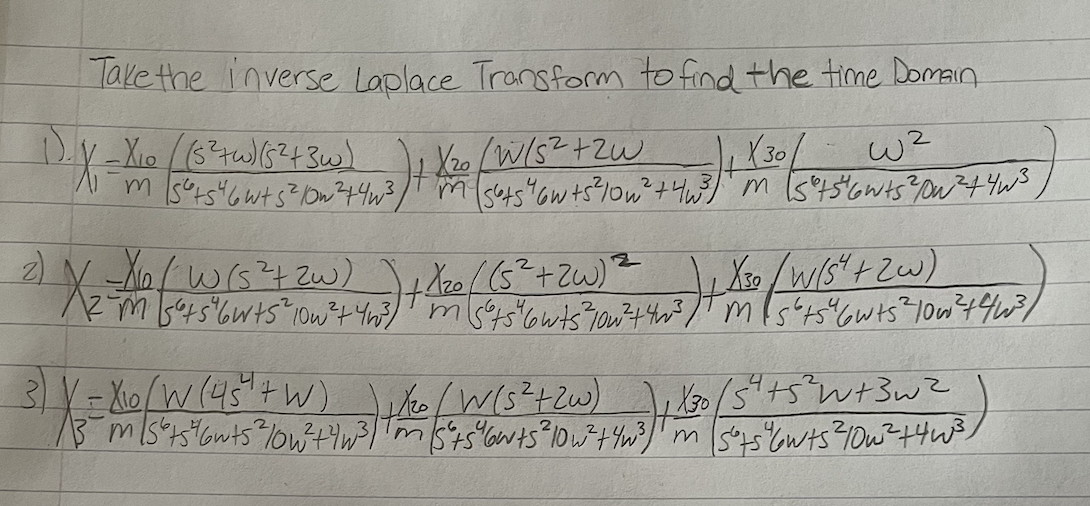 Take the inverse Laplace Transform to find the time Domain
1). X₁ = X₁₀/m ((s²+w)(s²+3w)/(s⁶+s⁴6w+s²10w²+4w³)) + X₂₀/m (W(s²+2w/(s⁶+s⁴6w+s²10w²+4w³)) + X₃₀/m (w²/(s⁶+s⁴6w+s²10w²+4w³))
2) X₂ = X₁₀/m (W(s²+2w)/(s⁶+s⁴6w+s²10w²+4w³)) + X₂₀/m ((s²+2w)²/(s⁶+s⁴6w+s²10w²+4w³)) + X₃₀/m (W(s⁴+2w)/(s⁶+s⁴6w+s²10w²+4w³))
3) X₃ = X₁₀/m (W(4s⁴+W)/(s⁶+s⁴6w+s²10w²+4w³)) + X₂₀/m (W(s²+2w)/(s⁶+s⁴6w+s²10w²+4w³)) + X₃₀/m (s⁴+s²w+3w²/(s⁶+s⁴6w+s²10w²+4w³))